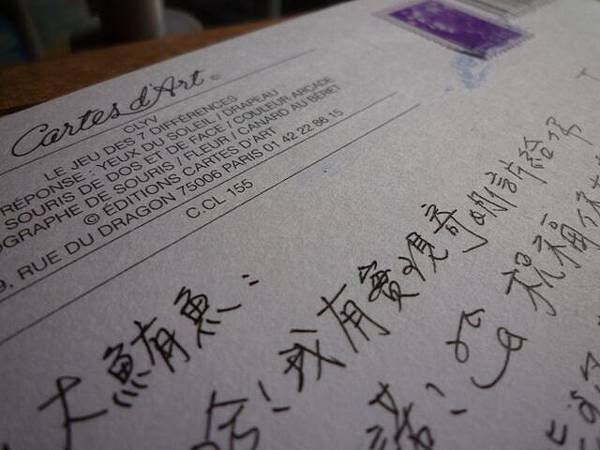 Cartes d'Art ©
CLYV
LE JEU DES 7 DIFFÉRENCES
RÉPONSE : YEUX DU SOLEIL / DRAPEAU
SOURIS DE DOS ET DE FACE / COULEUR ARCADE
OGRAPHE DE SOURIS / FLEUR / CANARD AU BÉRET
© ÉDITIONS CARTES D'ART
9, RUE DU DRAGON 75006 PARIS 01 42 22 86 15
C.CL 155
大鮪魚：
哈！我有實現奇明許給你
諾！ 祝福你